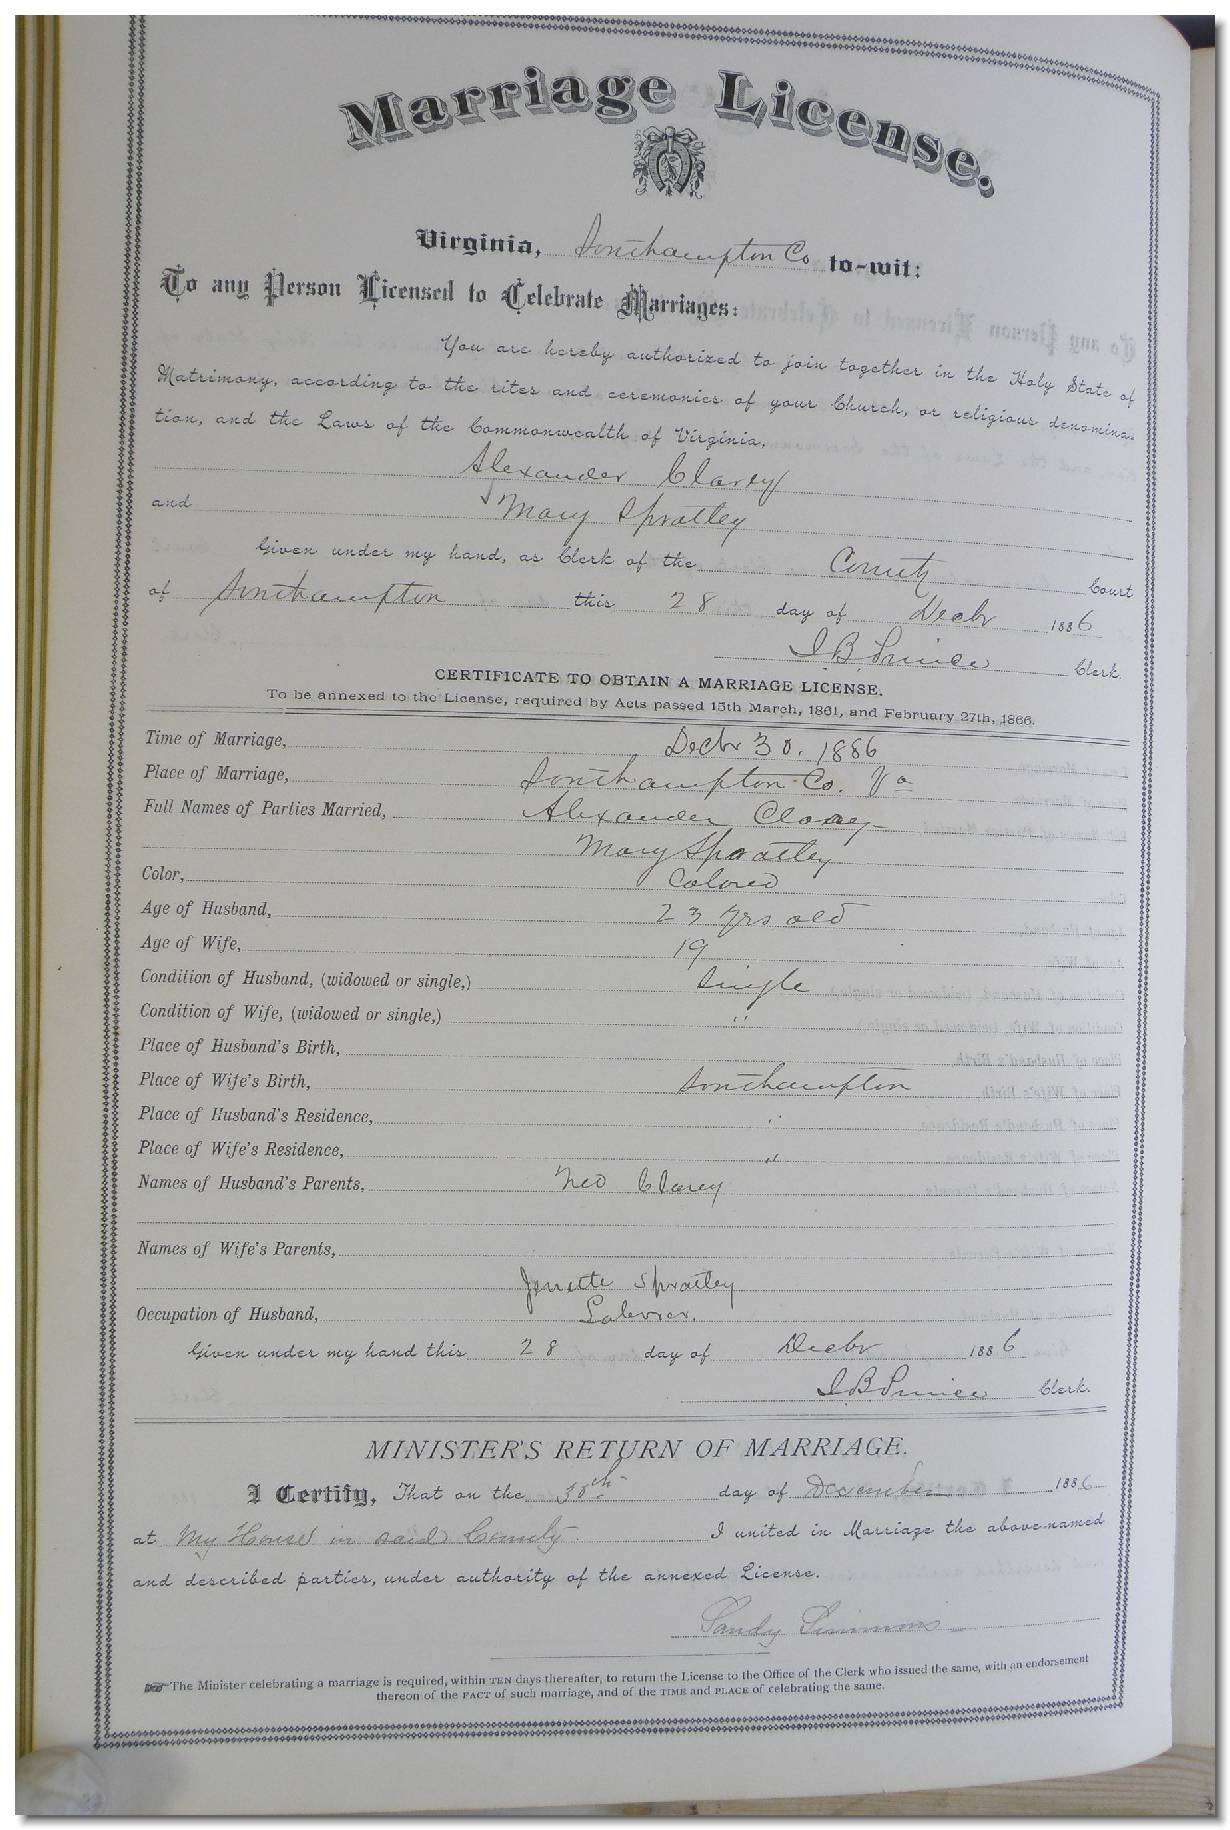 Marriage License.
Virginia, Southampton Co to-wit:
To any Person Licensed to Celebrate Marriages:
You are hereby authorized to join together in the Holy State of
Matrimony, according to the rites and ceremonies of your Church, or religious denomina-
tion, and the Laws of the Commonwealth of Virginia,
Alexander Clarey
and Mary Spratley
Given under my hand, as Clerk of the County Court
of Southampton this 28 day of Decbr 1886
J. B. Prince Clerk.
CERTIFICATE TO OBTAIN A MARRIAGE LICENSE.
To be annexed to the License, required by Acts passed 15th March, 1861, and February 27th, 1866.
Time of Marriage, Decbr 30. 1886
Place of Marriage, Southampton Co. Va
Full Names of Parties Married, Alexander Clarey
Mary Spratley
Color, Colored
Age of Husband, 23 yrs old
Age of Wife, 19
Condition of Husband, (widowed or single,) Single
Condition of Wife, (widowed or single,) "
Place of Husband's Birth,
Place of Wife's Birth, Southampton
Place of Husband's Residence, "
Place of Wife's Residence, "
Names of Husband's Parents, Clarey
Names of Wife's Parents,
Spratley
Occupation of Husband, Laborer.
Given under my hand this 28 day of Decbr 1886
J B Prince Clerk.
MINISTER'S RETURN OF MARRIAGE.
I Certify, That on the 30th day of December 1886
at My House in said County I united in Marriage the above-named
and described parties, under authority of the annexed License.
Sandy Simmons
☞ The Minister celebrating a marriage is required, within TEN days thereafter, to return the License to the Office of the Clerk who issued the same, with an endorsement
thereon of the FACT of such marriage, and of the TIME and PLACE of celebrating the same.